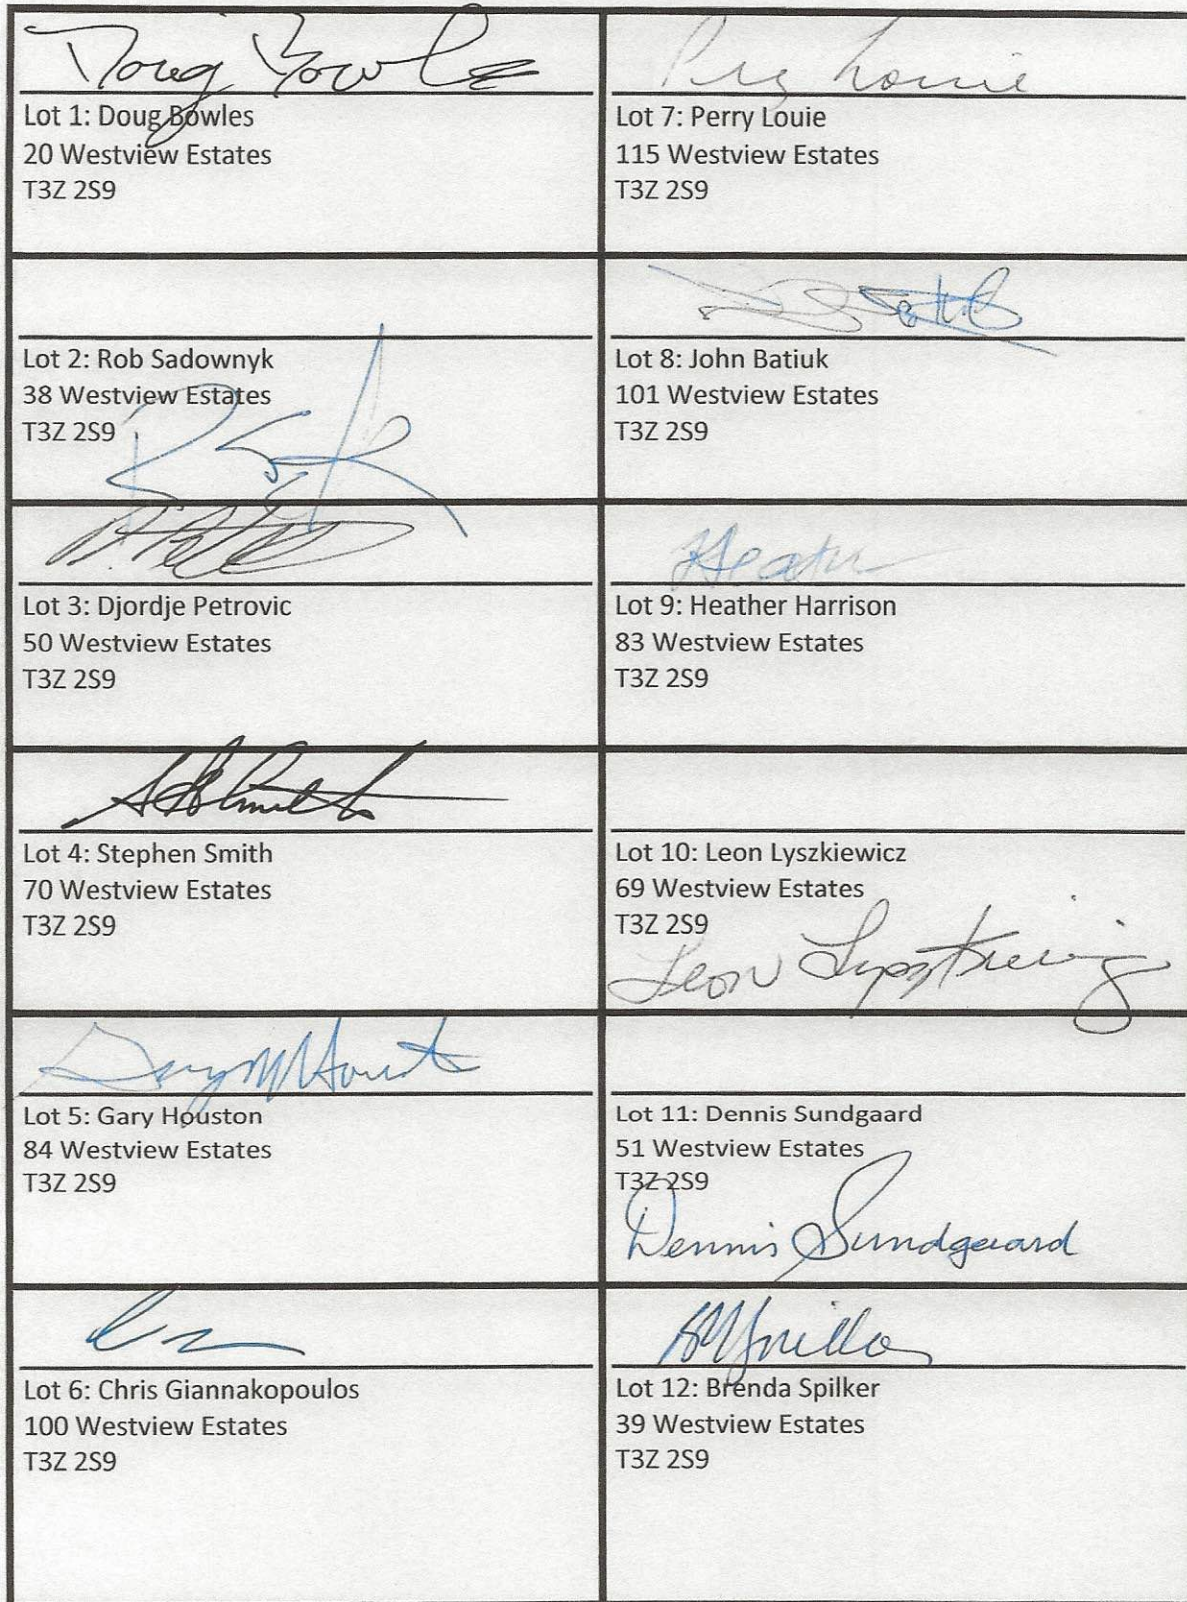 Doug Bowles
Lot 1: Doug Bowles
20 Westview Estates
T3Z 2S9
Lot 2: Rob Sadownyk
38 Westview Estates
T3Z 2S9
Lot 3: Djordje Petrovic
50 Westview Estates
T3Z 2S9
Lot 4: Stephen Smith
70 Westview Estates
T3Z 2S9
Lot 5: Gary Houston
84 Westview Estates
T3Z 2S9
Lot 6: Chris Giannakopoulos
100 Westview Estates
T3Z 2S9
Louie
Lot 7: Perry Louie
115 Westview Estates
T3Z 2S9
Lot 8: John Batiuk
101 Westview Estates
T3Z 2S9
Lot 9: Heather Harrison
83 Westview Estates
T3Z 2S9
Lot 10: Leon Lyszkiewicz
69 Westview Estates
T3Z 2S9
Leon
Lot 11: Dennis Sundgaard
51 Westview Estates
T3Z 2S9
Dennis Sundgaard
Lot 12: Brenda Spilker
39 Westview Estates
T3Z 2S9